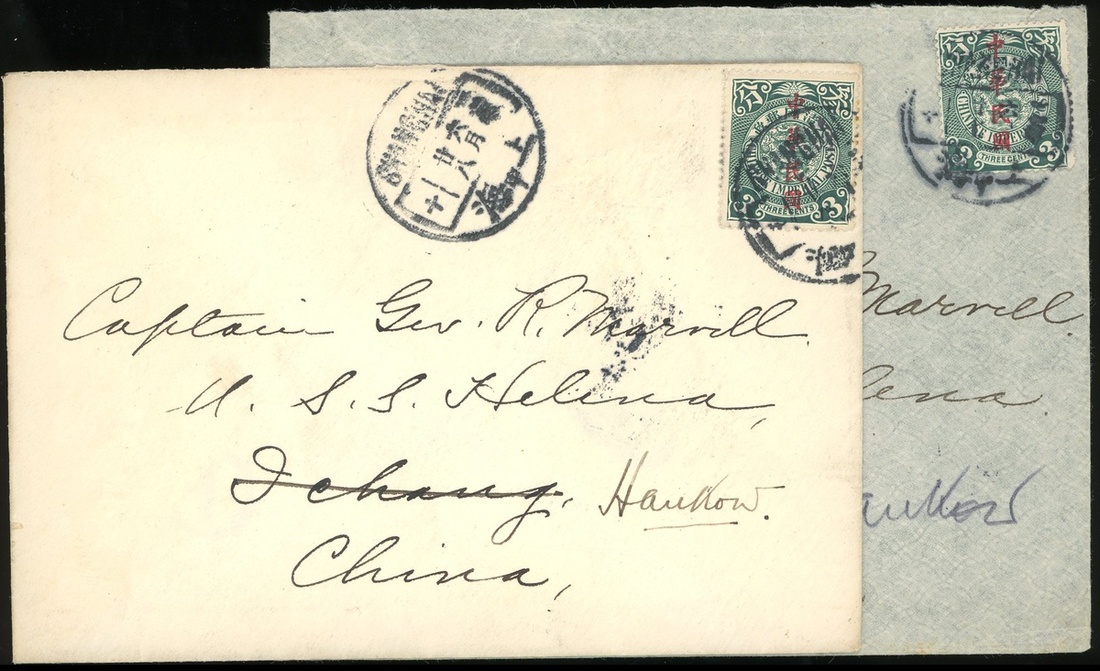 SHANGHAI
六月
廿八
十一
上海
中華民國
IMPERIAL POST
3 THREE CENTS 3
Captain Geo. R. Marvell.
U. S. S. Helena,
Ichang, Hankow.
China,
中華民國
THREE CENT
Marvell.
lena.
ankow